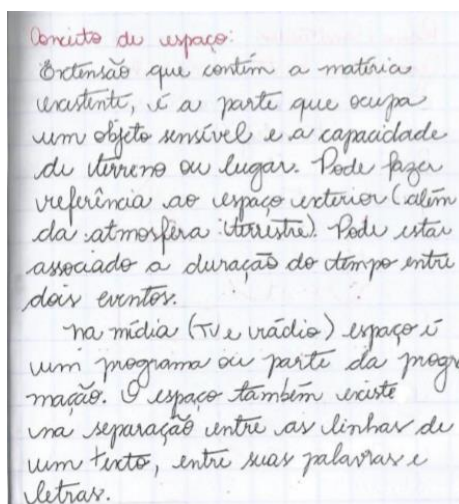 Conceito de espaço:
Extensão que contém a matéria
existente, é a parte que ocupa
um objeto sensível e a capacidade
de terreno ou lugar. Pode fazer
referência ao espaço exterior (além
da atmosfera terrestre). Pode estar
associado a duração do tempo entre
dois eventos.
Na mídia (TV e rádio) espaço é
um programa ou parte da progra
mação. O espaço também existe
na separação entre as linhas de
um texto, entre suas palavras e
letras.